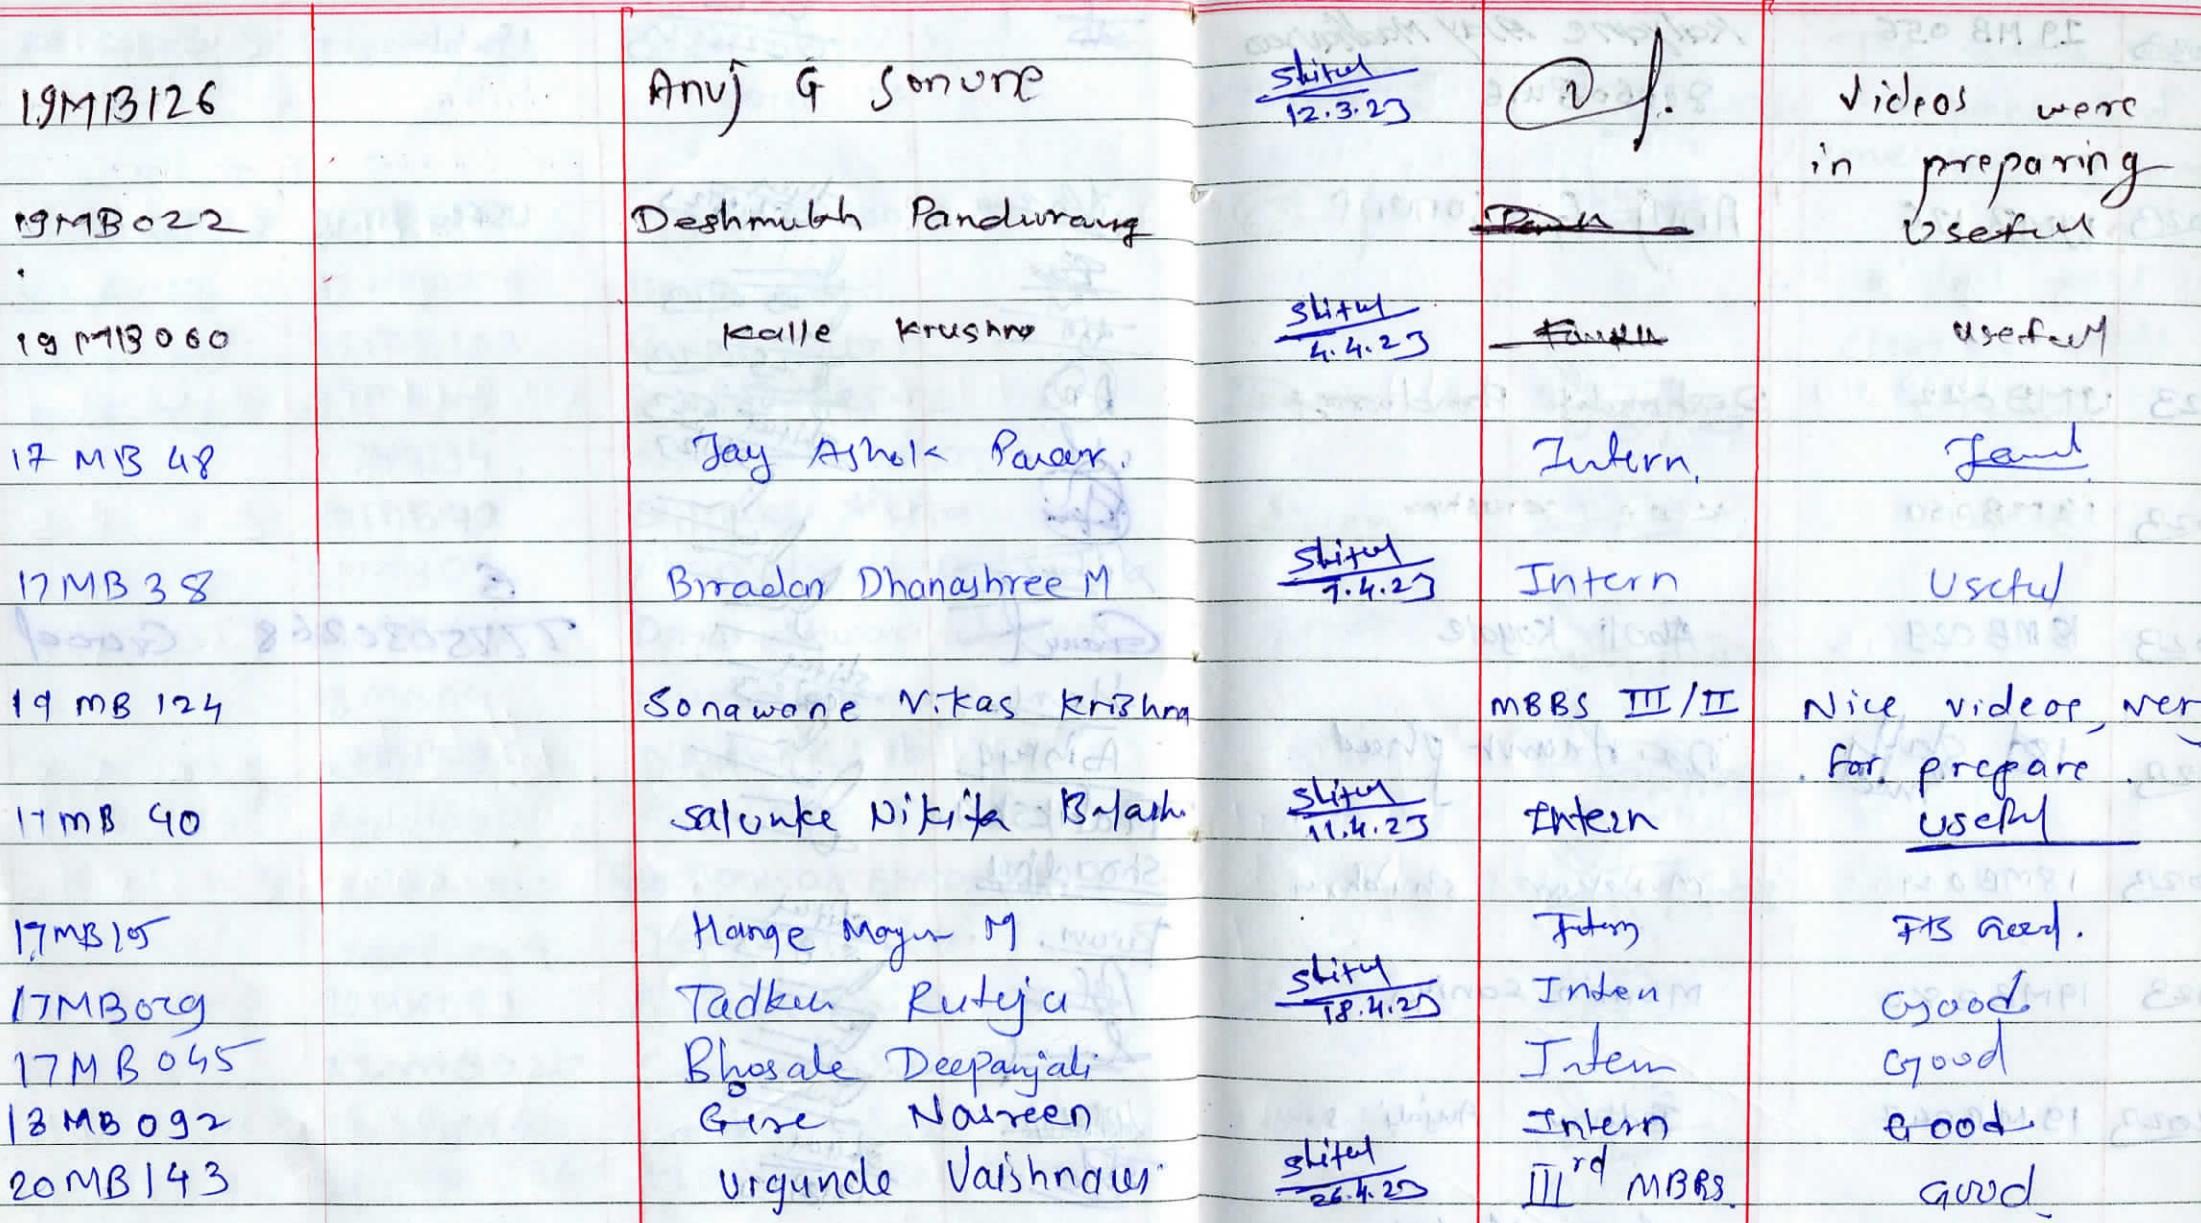 19MB126 Anuj G Sonune 12.3.23 Videos were
in preparing
19MB022 Deshmukh Pandurang Useful
19MB060 Kalle Krushna 4.4.23 Useful
17 MB 48 Jay Ashok Pawar. Intern,
17MB38 Biradar Dhanashree M 9.4.23 Intern Useful
19 MB 124 Sonawane Vikas Krishna MBBS III/II Nice videos, ver
for prepare.
17MB 40 Salunke Nikita 11.4.23 Intern Useful
17MB15 Hange Mayur M Intern FB Good.
17MB029 Rutuja 18.4.23 Intern Good
17MB045 Bhosale Deepanjali Intern Good
18MB092 Nasreen Intern Good
20MB143 Urgunde Vaishnavi 26.4.23 IIIrd MBBS Good